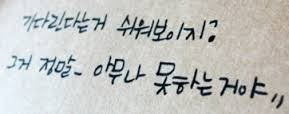 기다린다는거 쉬워보이지?
그거 정말- 아무나 못하는거야〃